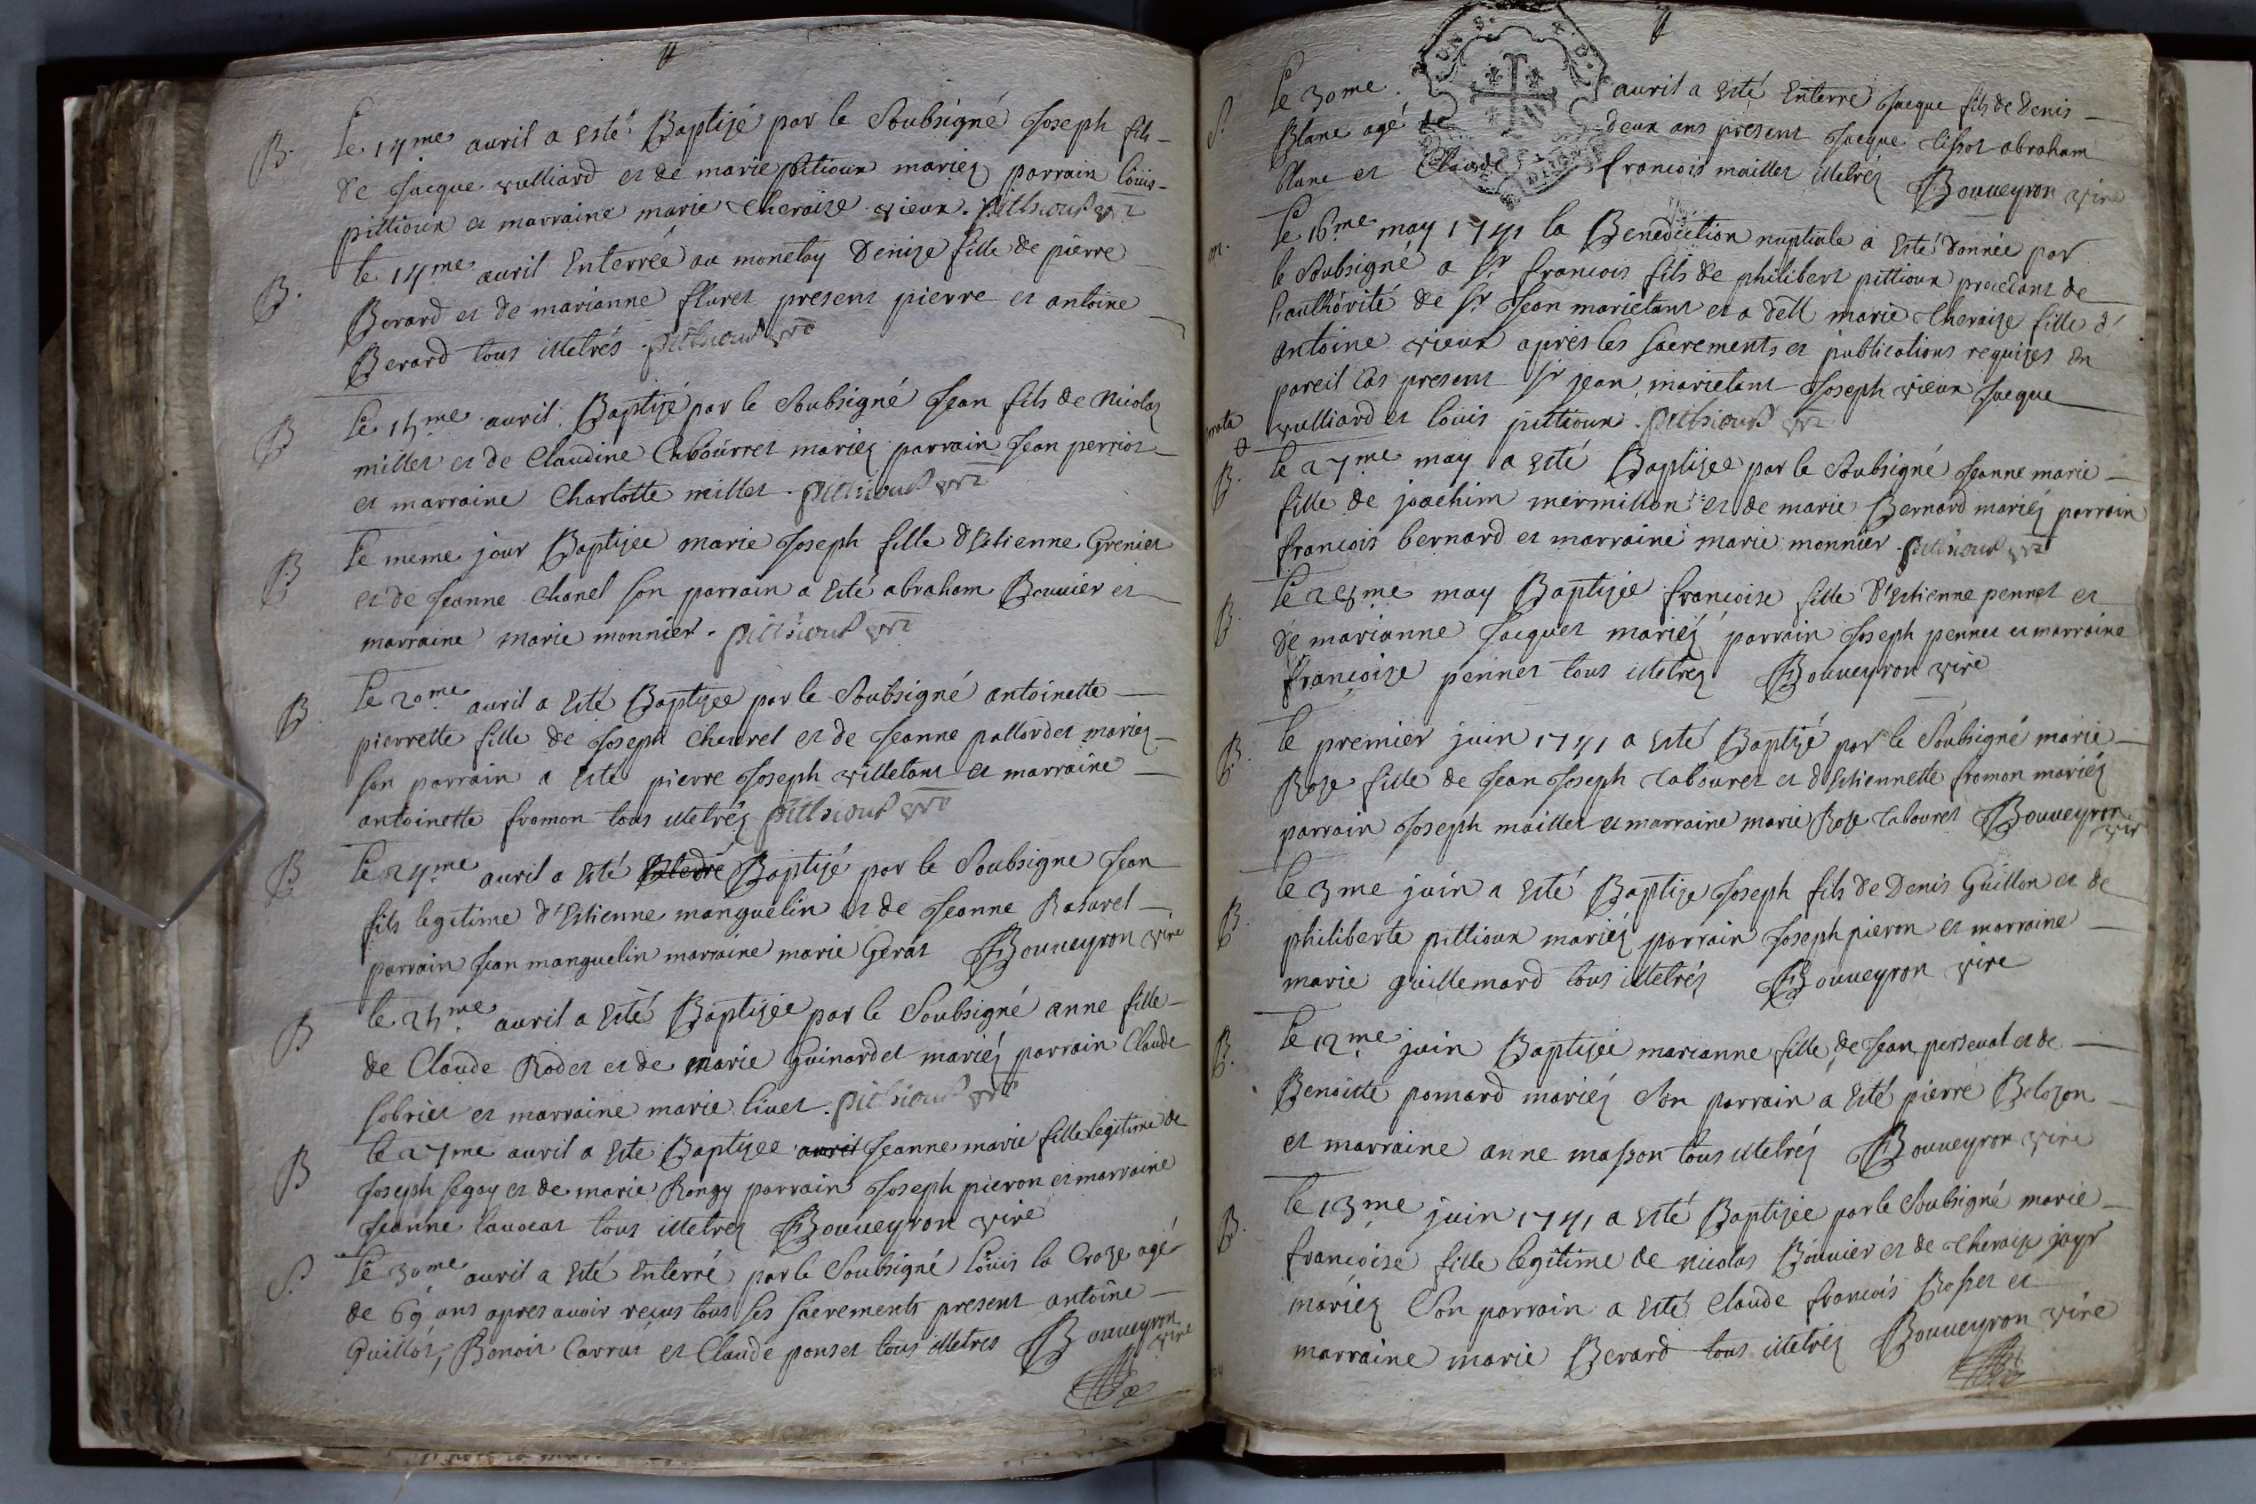 B. Le 14me avril a Esté Baptisé par le Soubsigné Joseph fils
de Jacque vulliard et de marie pittioux mariez parrain louis
pittioux et marraine marie Cheraize vieux. pittioux vre
B. le 14me avril Enterrée au monetay Denize fille de pierre
Berard et de marianne fluret present pierre et antoine
Berard tous illetrés pittioux vre
B Le 15me avril Baptisé par le Soubsigné Jean fils de Nicolas
millet et de Claudine Cabourret mariez parrain Jean perriot
et marraine Charlotte millet. pittioux vre
B Le meme jour Baptisée marie Joseph fille d'Estienne Grenier
et de Jeanne Chanel son parrain a Esté abraham Bouuier et
marraine marie monnier. pittioux vre
B. Le 20me avril a Esté Baptisée par le Soubsigné antoinette
pierrette fille de Joseph Chavrel et de Jeanne pallordet mariez
son parrain a Esté pierre Joseph villetant et marraine
antoinette fromon tous illetréz pittioux vre
B Le 24me avril a Esté Baptisé par le Soubsigne Jean
fils legitime d'Estienne manguelin et de Jeanne Rasurel
parrain Jean manguelin marraine marie Gerat Bouueyron vire
B le 25me avril a Esté Baptisée par le Soubsigné anne fille
de Claude Rodet et de marie Guinardet mariéz parrain Claude
sobriet et marraine marie livet. pittioux vre
B le 27me avril a Este Baptisee avril Jeanne marie fille legitime de
Joseph segay et de marie Rongy parrain Joseph pieron et marraine
Jeanne lauocat tous illetrez Bouueyron vire
S. Le 30me avril a Esté Enterré par le Soubsigné louis la Croze agé
de 69 ans apres auoir reçus tous ses sacrements present antoine
Guillot, Benoit Carrut et Claude ponset tous illetres Bouueyron
vire
S. Le 30me avril a Esté Enterré Jacque fils de Denis
Blanc agé de deux ans present Jacque tissot abraham
blanc et Claude francois maillet illetréz Bouueyron vire
m. Le 16me may 1741 la Benediction nuptiale a Esté donnée par
le Soubsigné a Sr francois fils de philibert pittioux procedant de
l'authorité de Sr Jean marietant et a dell marie Cheraize fille d'
antoine vieux apres les sacrements et publications requizes En
pareil Cas present Sr jean marietant Joseph vieux Jacque
vulliard et louis pittioux. pittioux vre
B. le 27me may a Esté Baptisee par le Soubsigné Jeanne marie
fille de joachim mermillion et de marie Bernard mariéz parrain
francois bernard et marraine marie monnier. pittioux vre
B. Le 28me may Baptisée francoise fille d'Estienne pennet et
de marianne Jacquet mariéz parrain Joseph pennet et marraine
francoize pennet tous illetrez Bouueyron vire
B. le premier juin 1741 a Esté Baptisé par le Soubsigné marie
Roze fille de Jean Joseph tabouret et d'Estiennette fromon mariéz
parrain Joseph maillet et marraine marie Roze tabouret Bouueyron
vire
B. le 3me juin a Esté Baptize Joseph fils de Denis Guillon et de
philiberte pittioux mariéz parrain Joseph pieron et marraine
marie guillemard tous illetrés Bouueyron vire
B. Le 12me juin Baptisée marianne fille de Jean perseval et de
Benoitte pomard mariéz Son parrain a Esté pierre Belozon
et marraine anne masson tous illetréz Bouueyron vire
B. le 13me juin 1741 a Esté Baptisée par le Soubsigné marie
francoise fille legitime de nicolas Bouuier et de Cheraize jayr
mariéz Son parrain a Esté Claude francois Bosset et
marraine marie Berard tous illetréz Bouueyron vire